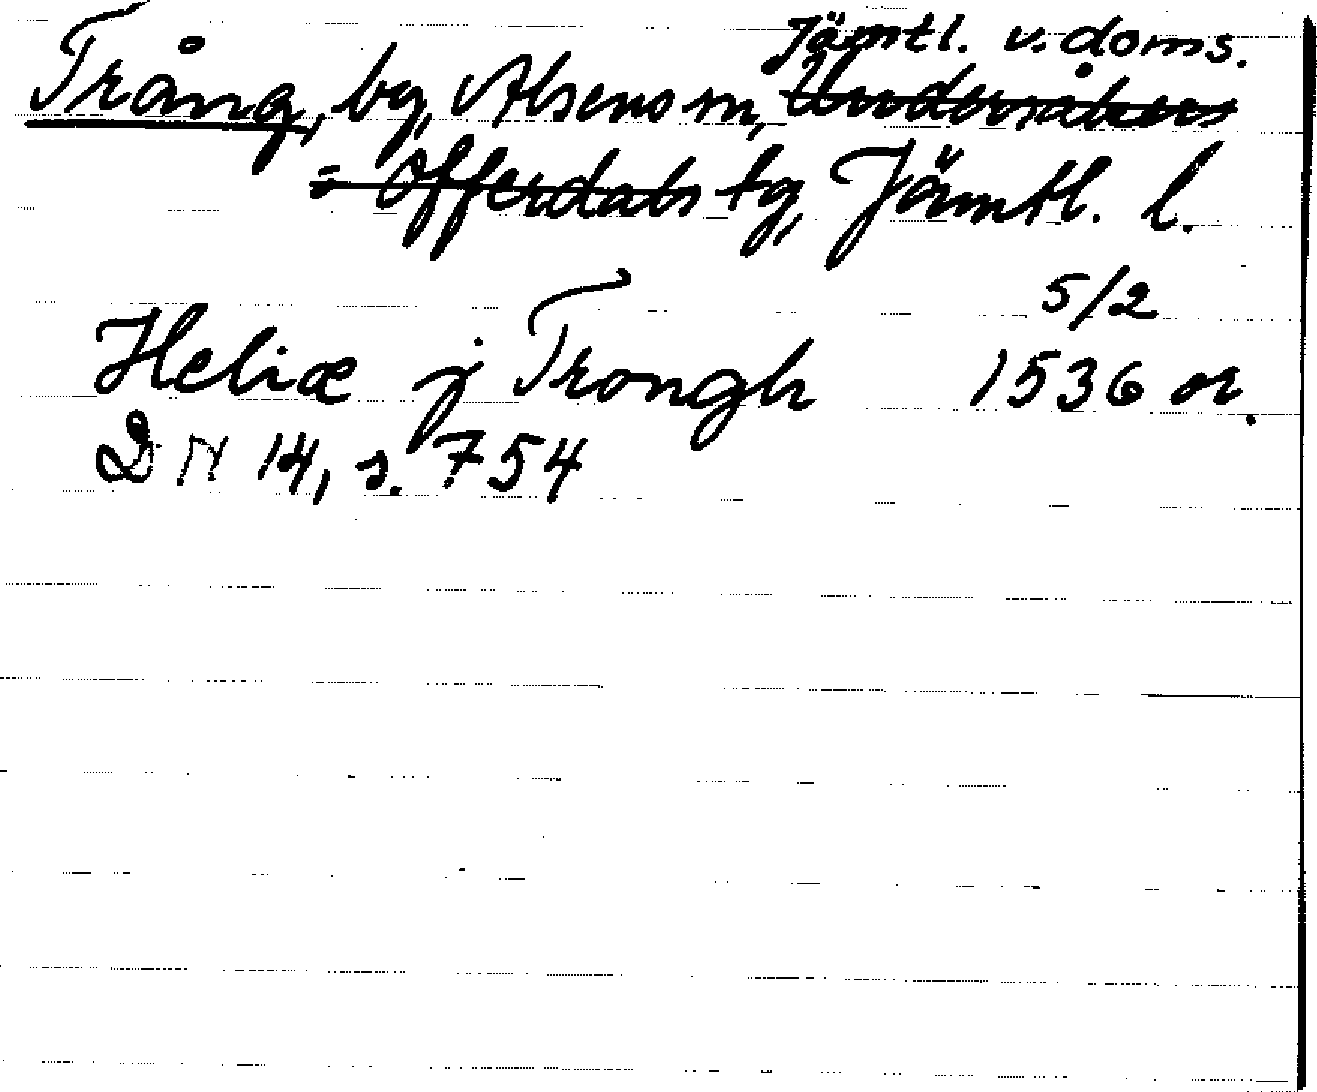 Jämtl. v. doms.
Trång, by, Alsens sn, Undersåkers
o Offerdals tg, Jämtl. l.
5/2
Heliæ j Trongh 1536 or.
DN 14, s. 754